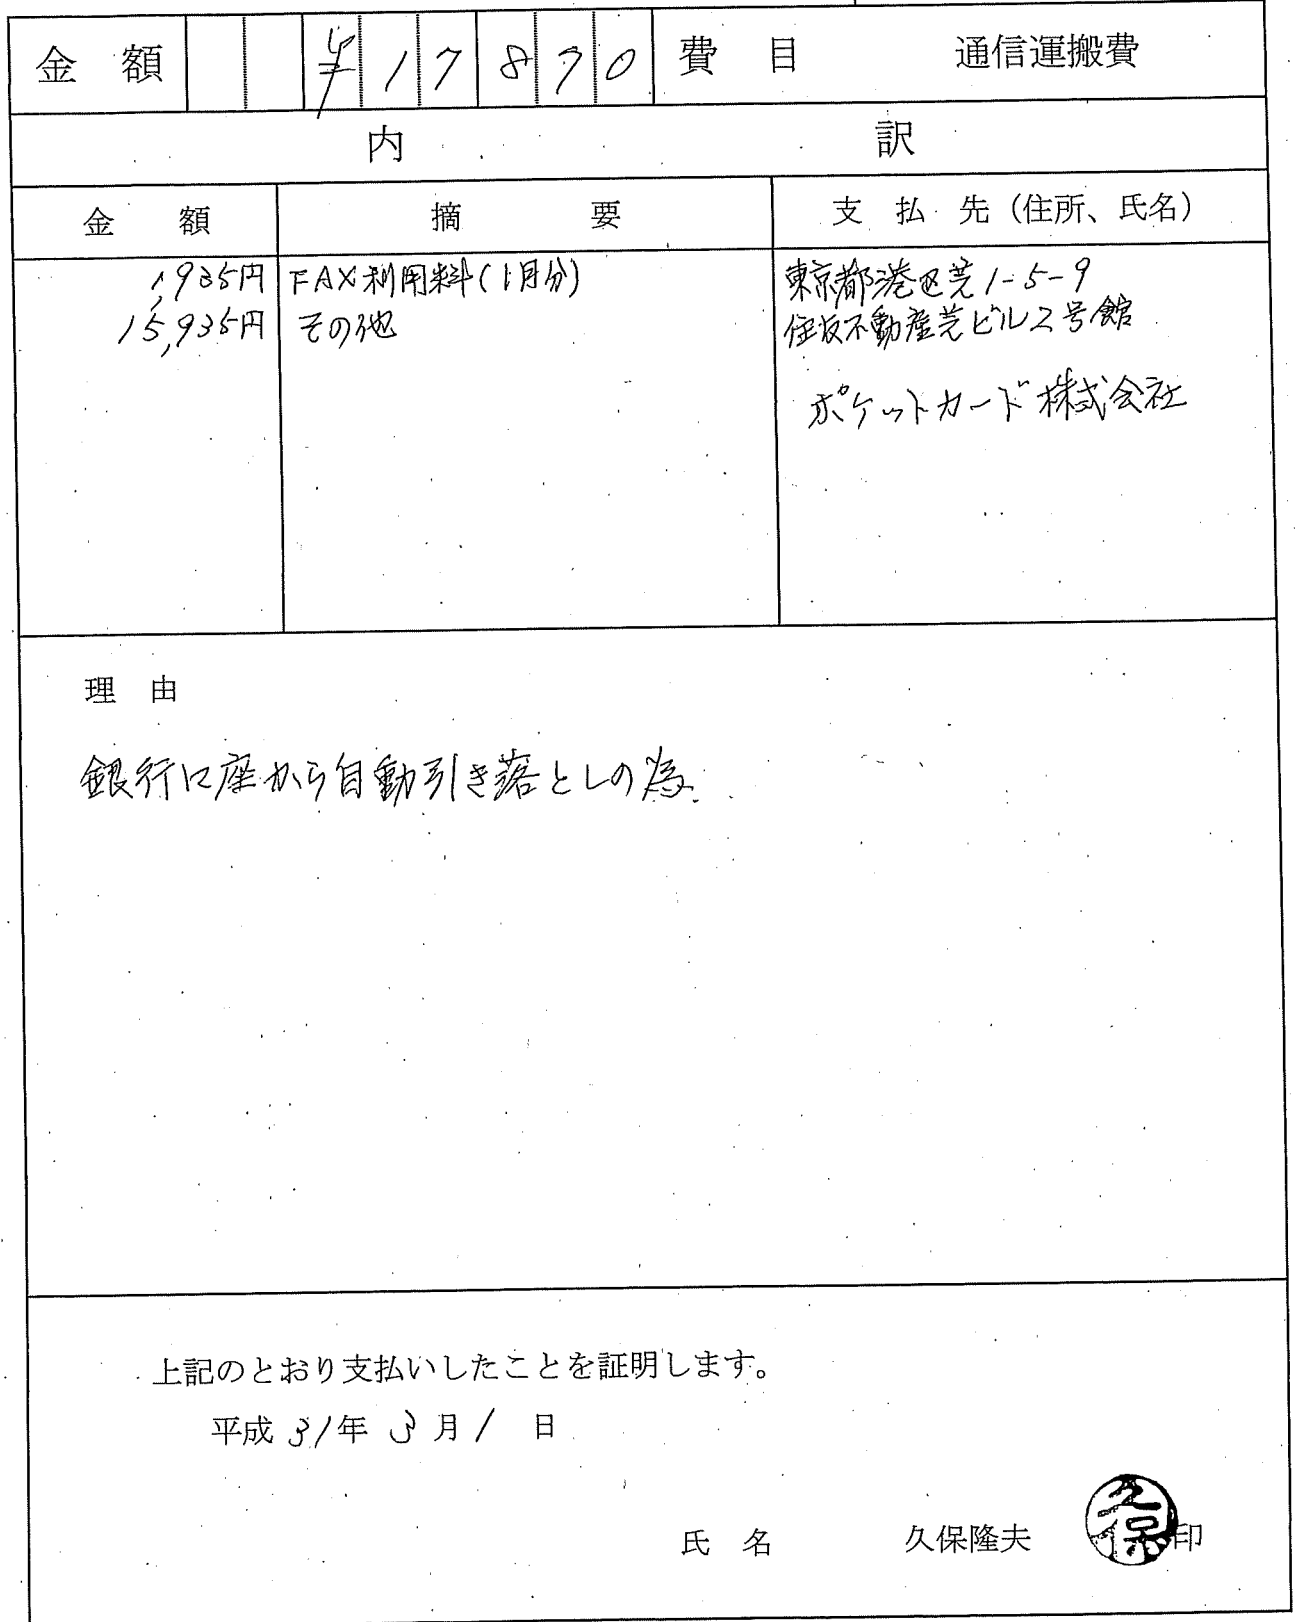 金 額 ¥17870 費 目 通信運搬費
内 訳
金 額 摘 要 支 払 先 (住所、氏名)
1,935円 FAX利用料(1月分) 東京都港区芝1-5-9
15,935円 その他 住友不動産芝ビル2号館
ポケットカード株式会社
理 由
銀行口座から自動引き落としの為
上記のとおり支払いしたことを証明します。
平成 31年 3月 1 日
氏 名 久保隆夫 印
久保